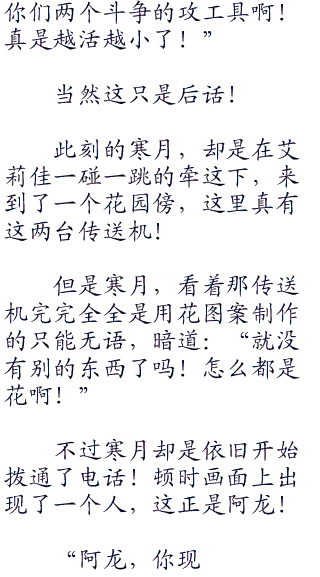 你们两个斗争的攻工具啊！
真是越活越小了！”
当然这只是后话！
此刻的寒月，却是在艾
莉佳一碰一跳的牵这下，来
到了一个花园傍，这里真有
这两台传送机！
但是寒月，看着那传送
机完完全全是用花图案制作
的只能无语，暗道：“就没
有别的东西了吗！怎么都是
花啊！”
不过寒月却是依旧开始
拨通了电话！顿时画面上出
现了一个人，这正是阿龙！
“阿龙，你现